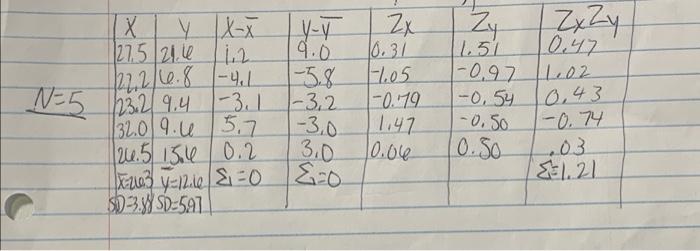 X Y X-X̄ Y-Ȳ Zx Zy ZxZy
27.5 21.6 1.2 9.0 0.31 1.51 0.47
22.2 6.8 -4.1 -5.8 -1.05 -0.97 1.02
N=5 23.2 9.4 -3.1 -3.2 -0.79 -0.54 0.43
32.0 9.6 5.7 -3.0 1.47 -0.50 -0.74
26.5 15.6 0.2 3.0 0.06 0.50 .03
X̄=26.3 Ȳ=12.6 Σ=0 Σ=0 Σ=1.21
SD=3.88 SD=5.97